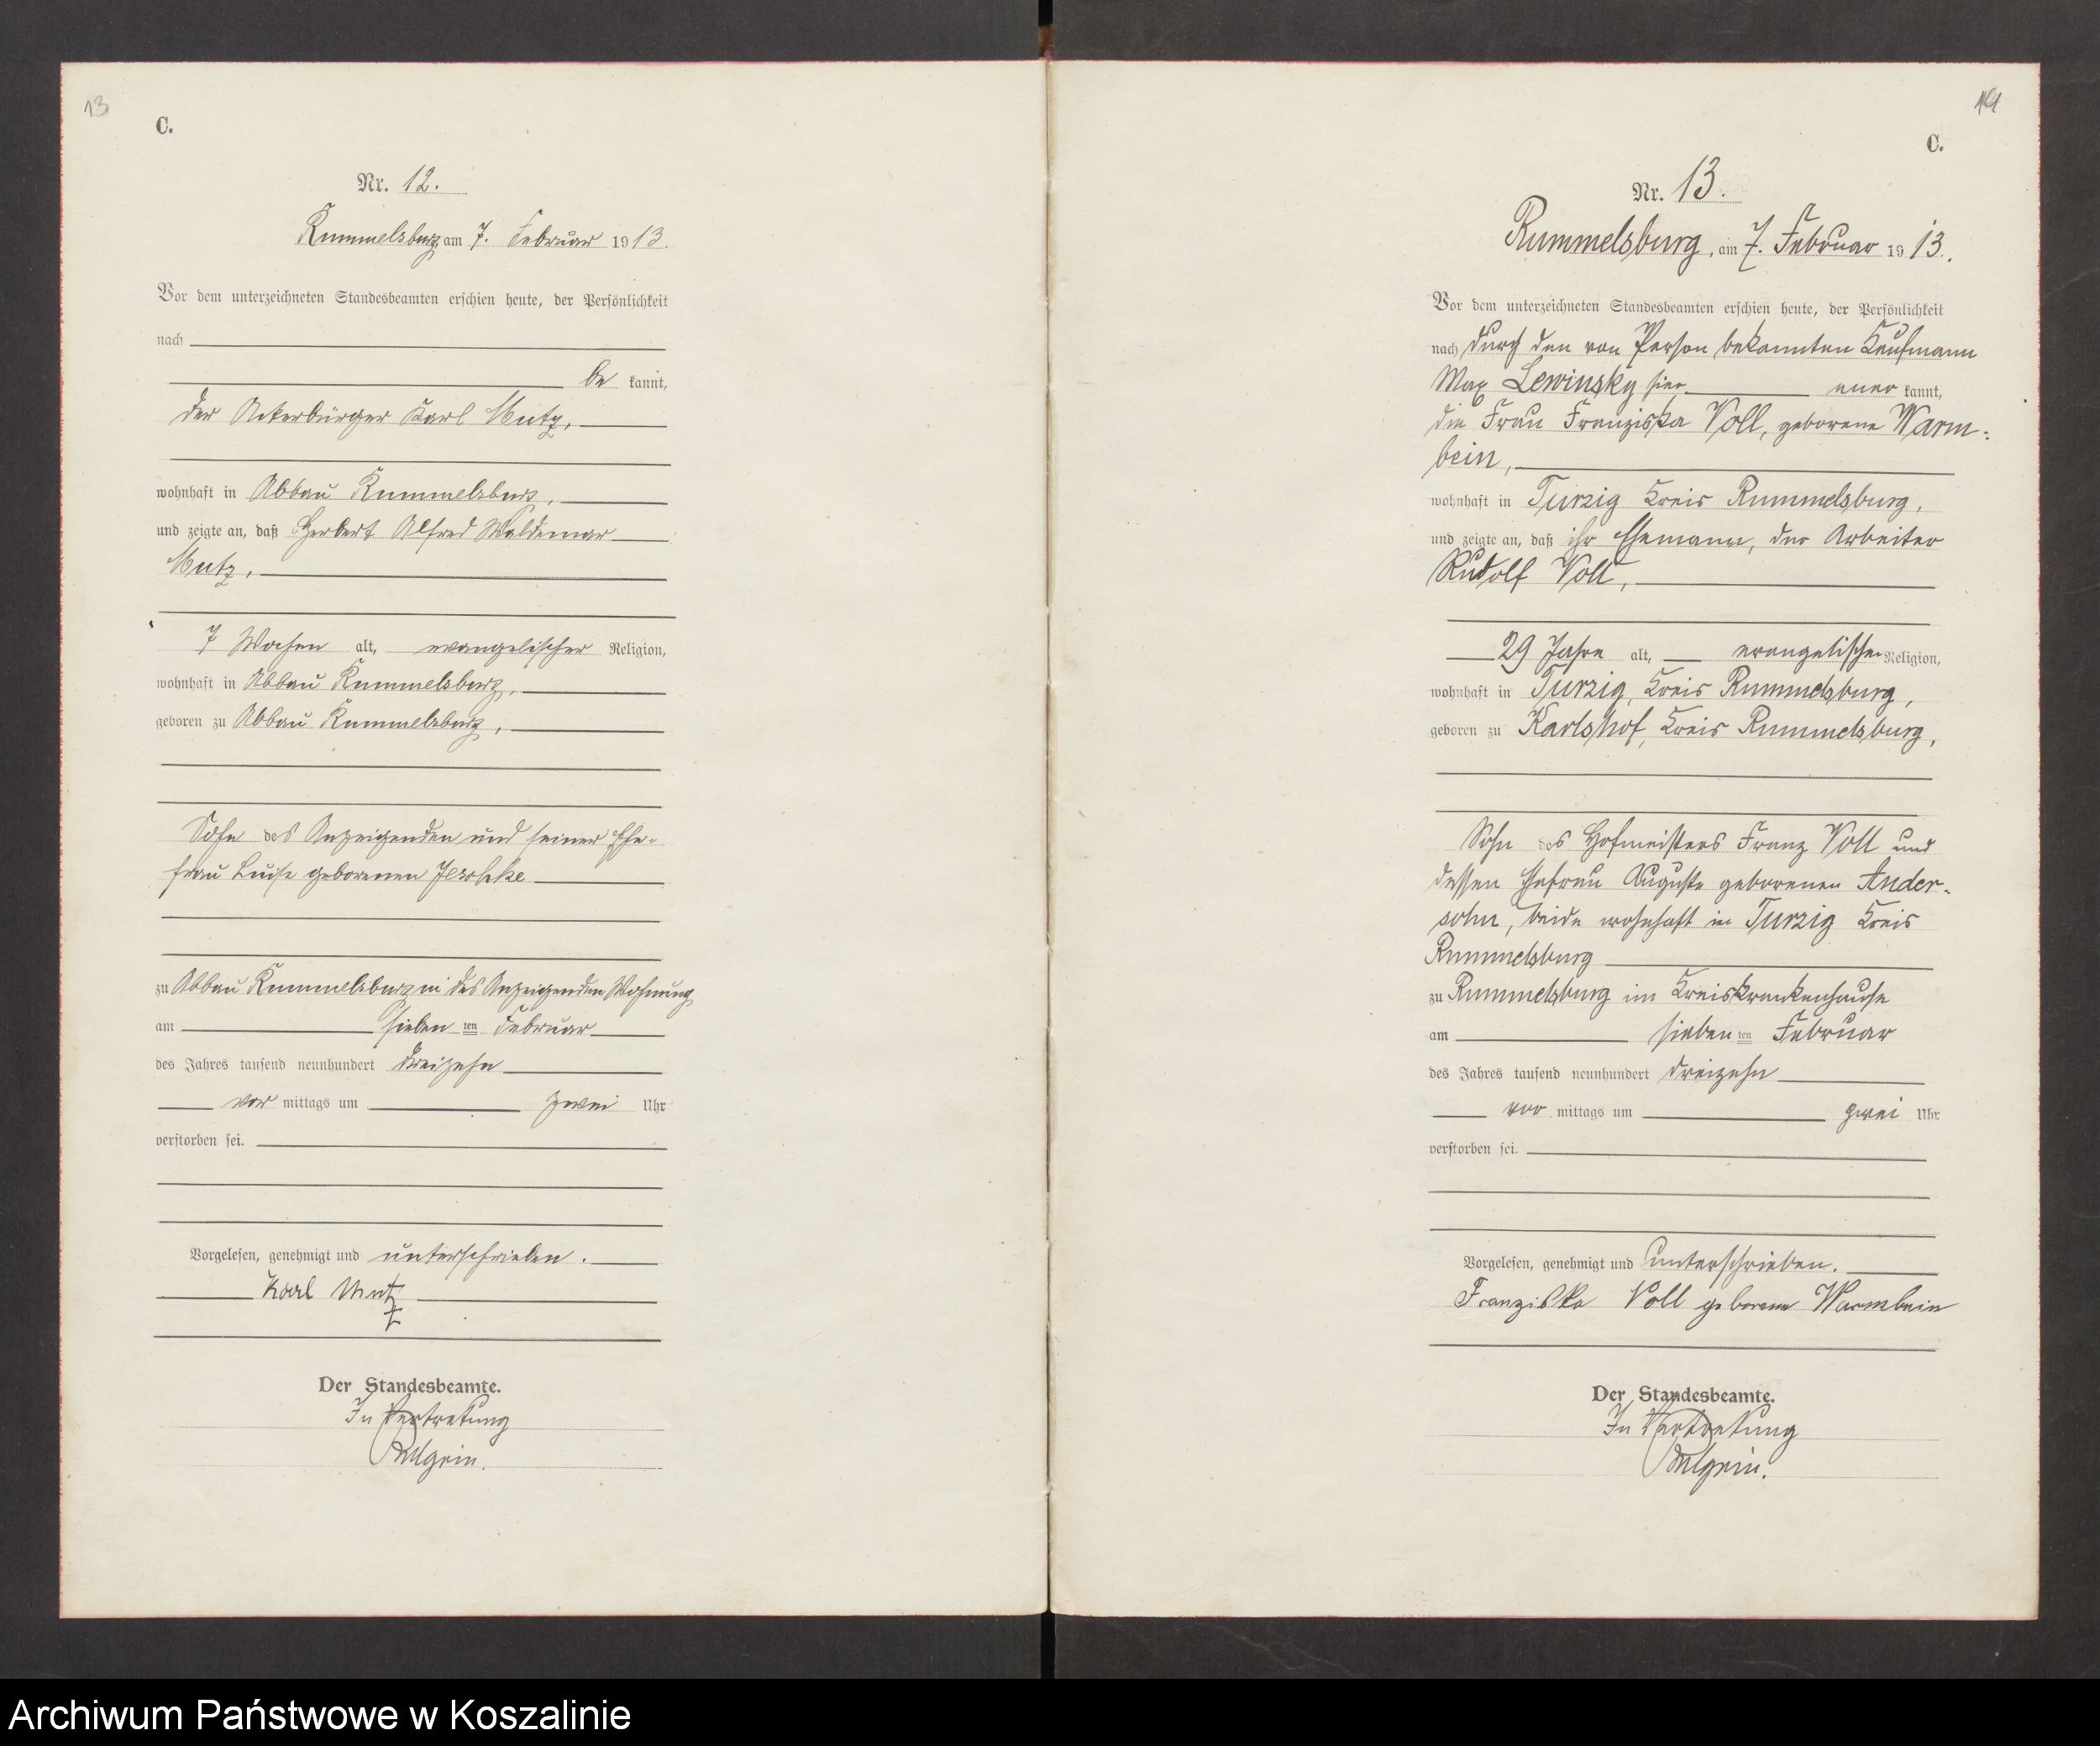 13
C.
Nr. 12.
Rummelsburg am 7. Februar 1913.
Vor dem unterzeichneten Standesbeamten erschien heute, der Persönlichkeit
nach
be kannt,
der Ackerbürger Karl Mutz,
wohnhaft in Abbau Rummelsburg,
und zeigte an, daß Herbert Alfred Waldemar
Mutz,
7 Wochen alt, evangelischer Religion,
wohnhaft in Abbau Rummelsburg,
geboren zu Abbau Rummelsburg,
Sohn des Anzeigenden und seiner Ehe-
frau Luise geborenen Jeschke
zu Abbau Rummelsburg in des Anzeigenden Wohnung
am sieben ten Februar
des Jahres tausend neunhundert dreizehn
vor mittags um zwei Uhr
verstorben sei.
Vorgelesen, genehmigt und unterschrieben.
Karl Mutz
Der Standesbeamte.
In Vertretung
14
C.
Nr. 13.
Rummelsburg, am 7. Februar 1913.
Vor dem unterzeichneten Standesbeamten erschien heute, der Persönlichkeit
nach durch den von Person bekannten Kaufmann
Max Lewinsky hier aner kannt,
die Frau Franziska Voll, geborene Warm-
bein,
wohnhaft in Turzig Kreis Rummelsburg,
und zeigte an, daß ihr Ehemann, der Arbeiter
Rudolf Voll,
29 Jahre alt, evangelischer Religion,
wohnhaft in Turzig, Kreis Rummelsburg,
geboren zu Karlshof, Kreis Rummelsburg,
Sohn des Hofmeisters Franz Voll und
dessen Ehefrau Auguste geborenen Ander-
sohn, beide wohnhaft in Turzig Kreis
Rummelsburg
zu Rummelsburg im Kreiskrankenhause
am sieben ten Februar
des Jahres tausend neunhundert dreizehn
vor mittags um zwei Uhr
verstorben sei.
Vorgelesen, genehmigt und unterschrieben.
Franziska Voll geborene Warmbein
Der Standesbeamte.
In Vertretung
Archiwum Państwowe w Koszalinie